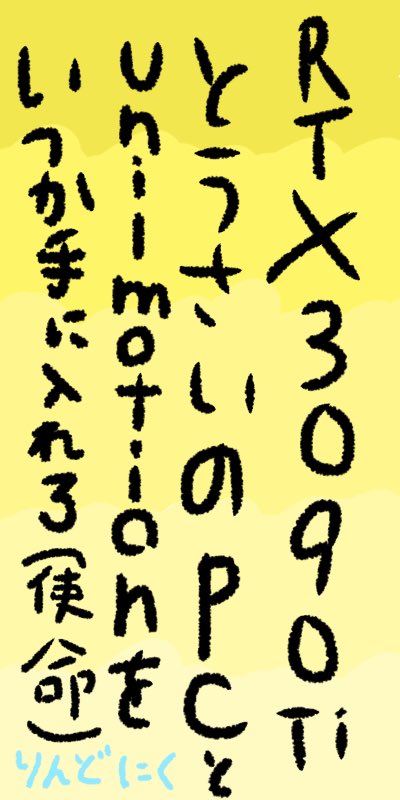 RTX3090Ti
とうさいのPCと
unimotionを
いつか手に入れる(使命)
りんどにく